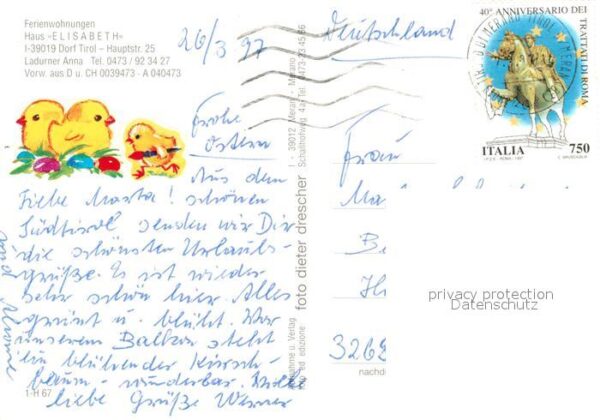 Ferienwohnungen
Haus »ELISABETH«
I-39019 Dorf Tirol – Hauptstr. 25
Ladurner Anna Tel. 0473 / 92 34 27
Vorw. aus D u. CH 0039473 - A 040473
26/3 97
Deutschland
40° ANNIVERSARIO DEI
TRATTATI DI ROMA
ITALIA 750
Frohe
Ostern
Aus dem
Liebe Marta! schönen
Südtirol senden wir Dir
die schönsten Urlaubs-
grüße. Es ist wieder
sehr schön hier. Alles
grünt u. blüht. Vor
unserem Balkon steht
ein blühender Kirsch-
baum - wunderbar. Viele
liebe Grüße Werner
und
1-H 67
foto dieter drescher
I - 39012 Meran - Merano
Schafferweg 4a Tel. 0473-23 45 66
Aufnahme u. Verlag
foto ed edizione
Frau
Ma
B
Ih
3269
nachd
privacy protection
Datenschutz